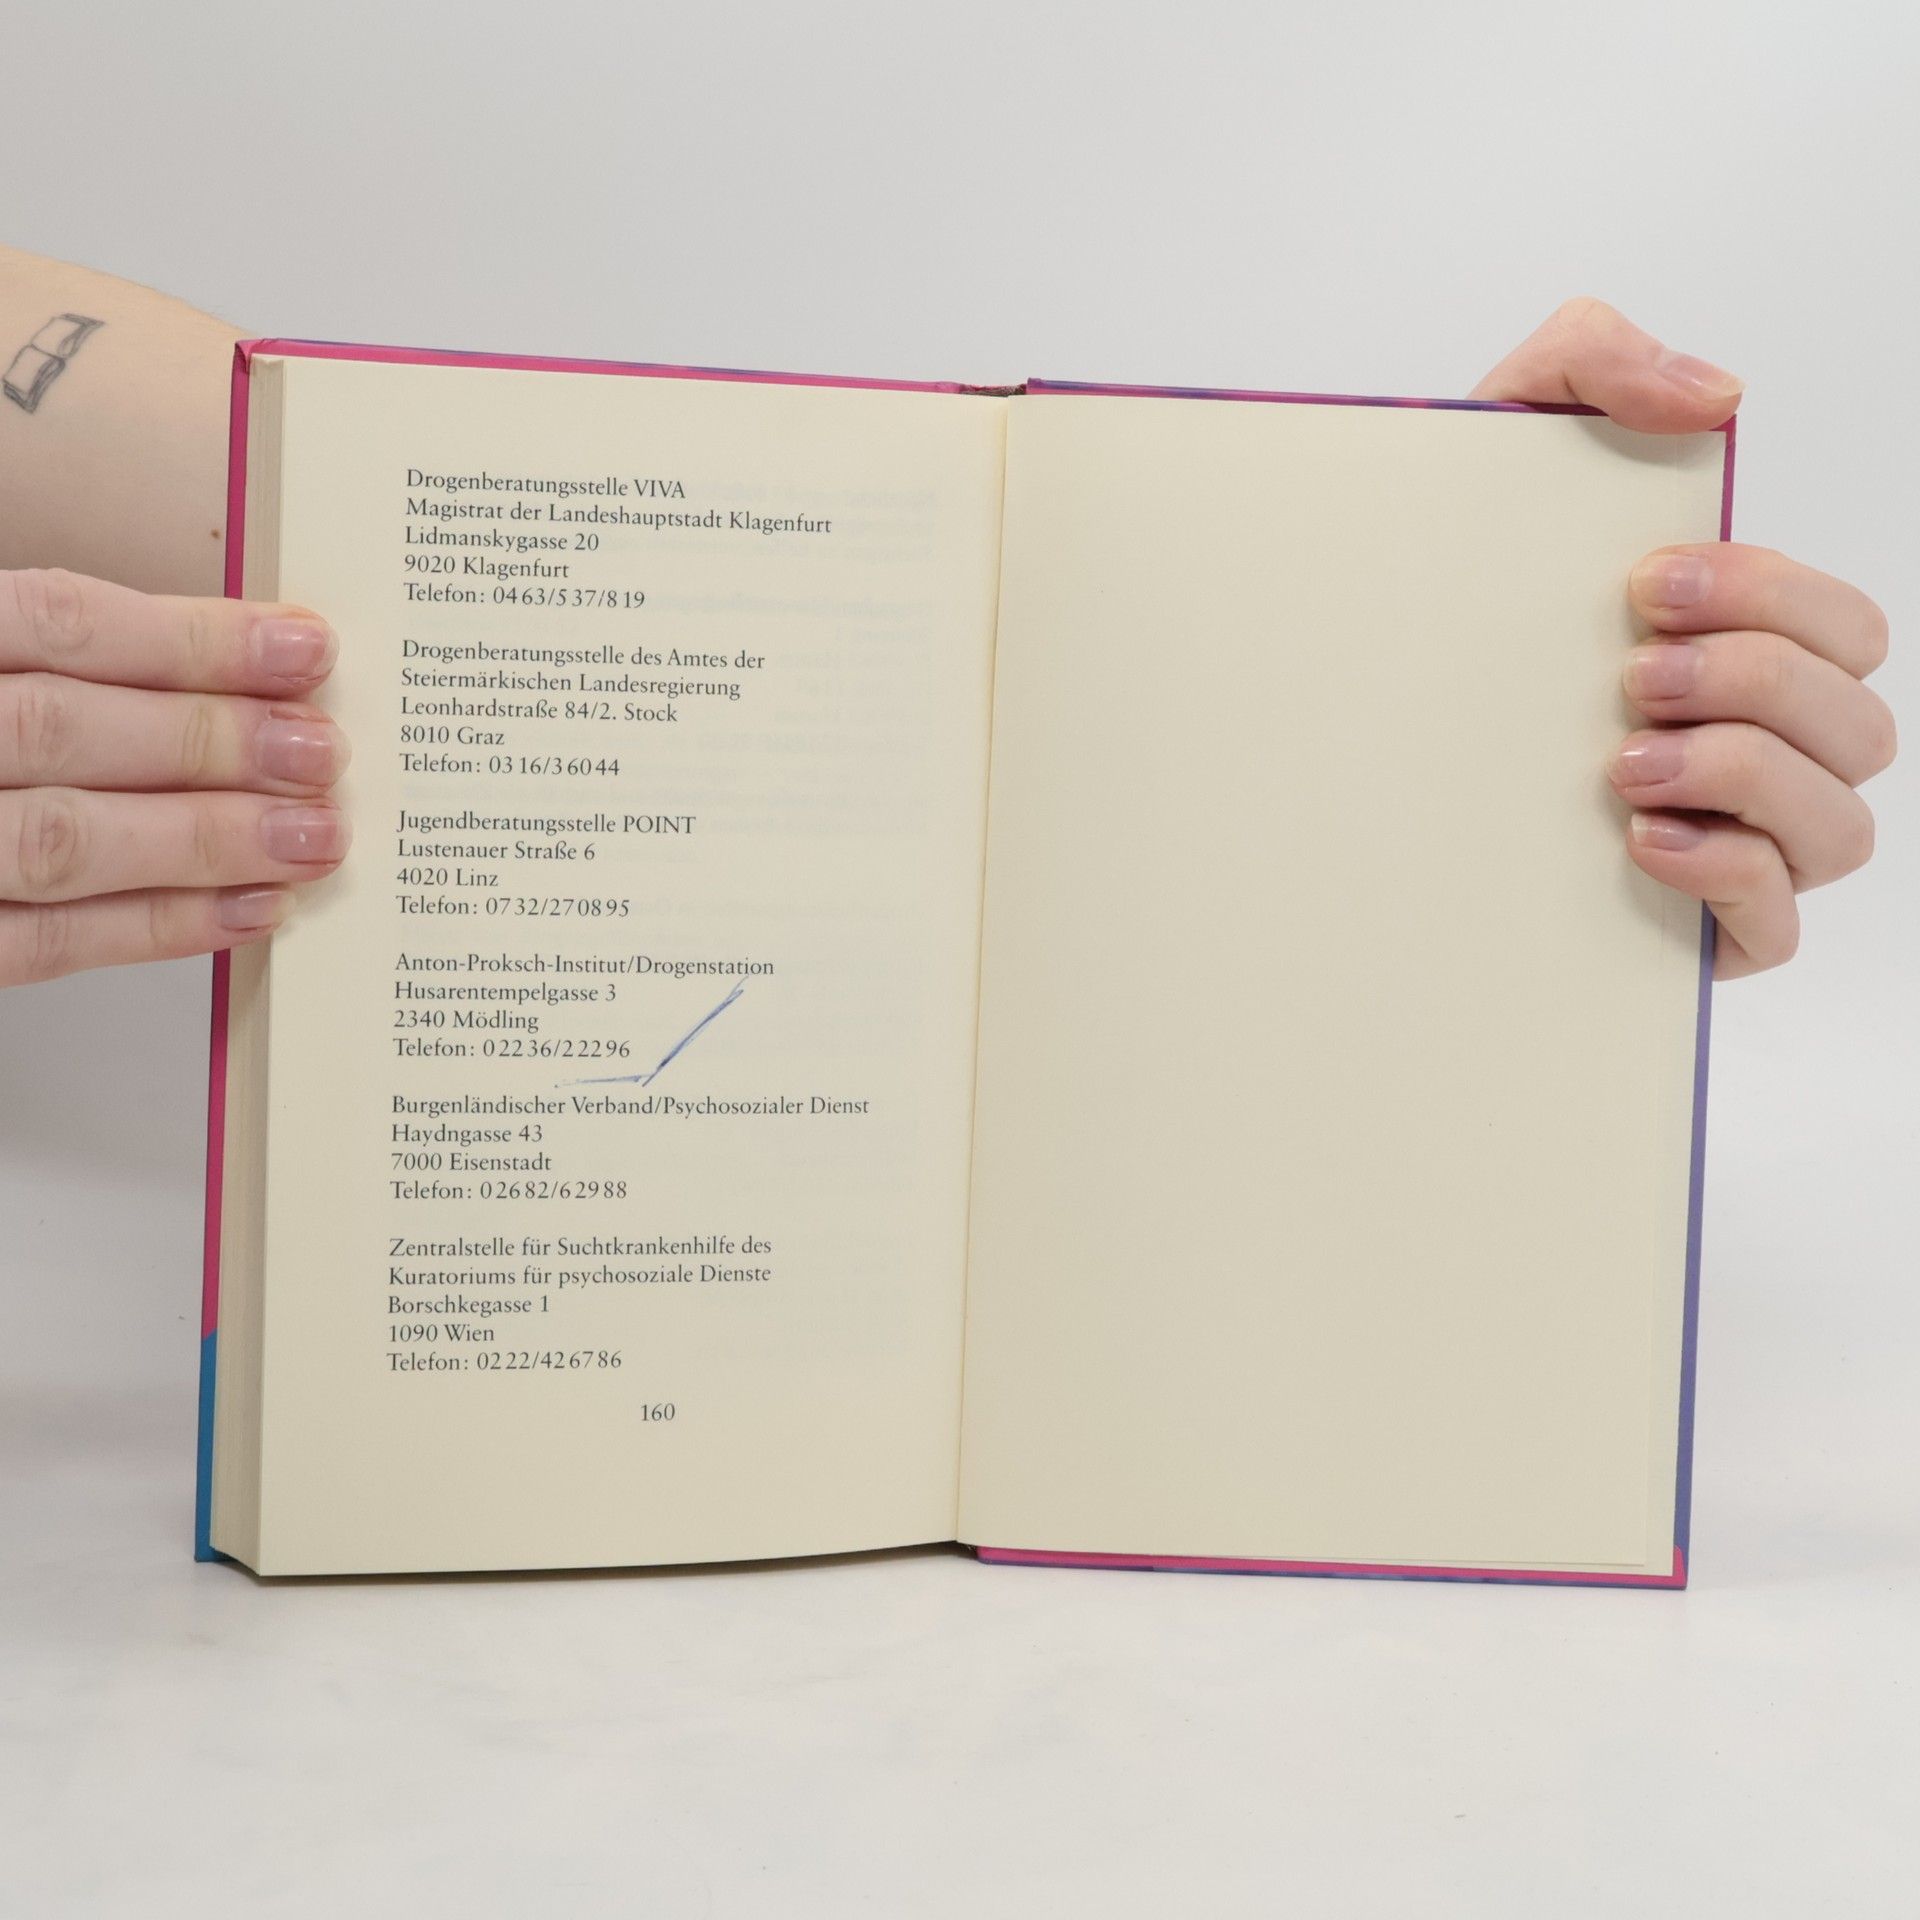 Drogenberatungsstelle VIVA
Magistrat der Landeshauptstadt Klagenfurt
Lidmanskygasse 20
9020 Klagenfurt
Telefon: 0463/537/819
Drogenberatungsstelle des Amtes der
Steiermärkischen Landesregierung
Leonhardstraße 84/2. Stock
8010 Graz
Telefon: 0316/36044
Jugendberatungsstelle POINT
Lustenauer Straße 6
4020 Linz
Telefon: 0732/270895
Anton-Proksch-Institut/Drogenstation
Husarentempelgasse 3
2340 Mödling
Telefon: 02236/22296
Burgenländischer Verband/Psychosozialer Dienst
Haydngasse 43
7000 Eisenstadt
Telefon: 02682/62988
Zentralstelle für Suchtkrankenhilfe des
Kuratoriums für psychosoziale Dienste
Borschkegasse 1
1090 Wien
Telefon: 0222/426786
160